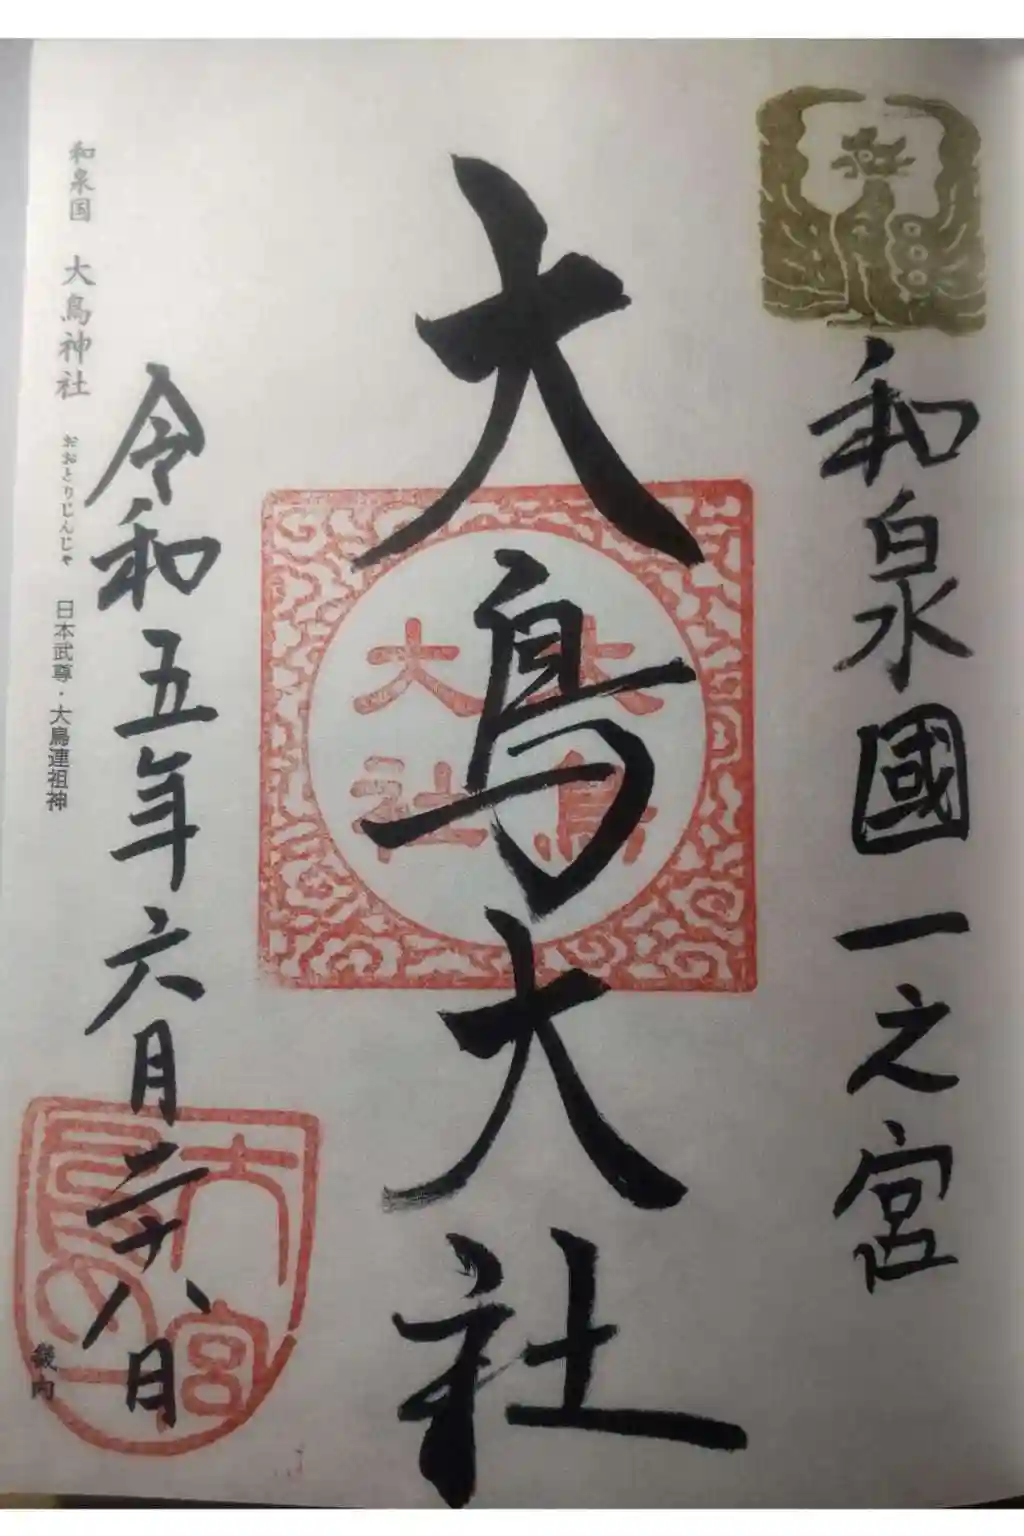 和泉國一之宮
大鳥大社
大鳥
大社
令和五年六月二十八日
大鳥
宮
和泉国 大鳥神社 おおとりじんじゃ 日本武尊・大鳥連祖神
畿内